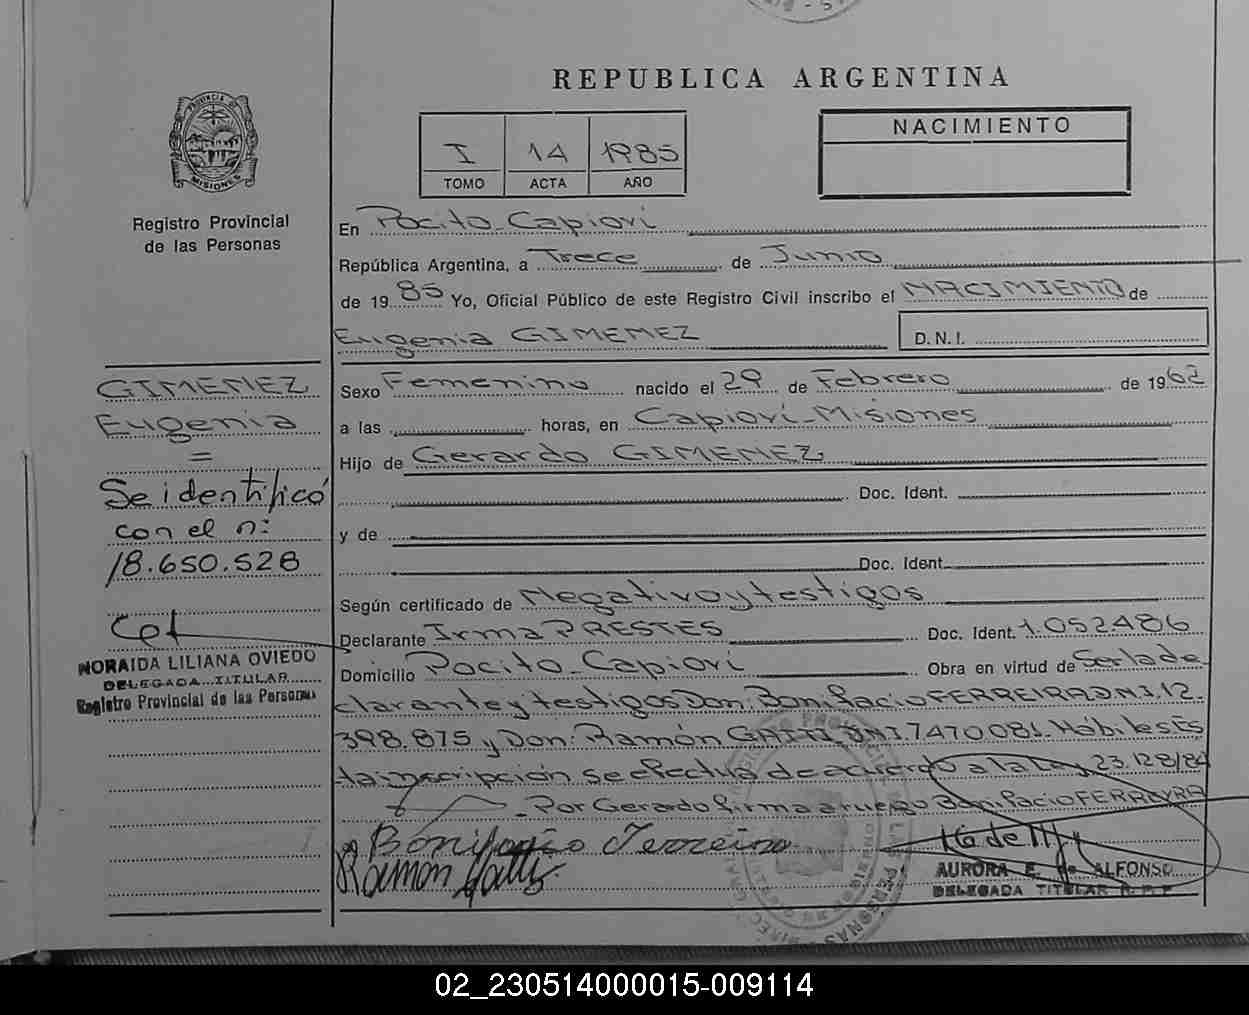 REPUBLICA ARGENTINA
PROVINCIA DE
MISIONES
Registro Provincial
de las Personas
I 14 1985
TOMO ACTA AÑO
NACIMIENTO
En Pocito-Capioví
República Argentina, a Trece de Junio
de 1985 Yo, Oficial Público de este Registro Civil inscribo el NACIMIENTO de
Eugenia GIMENEZ D.N.I.
GIMENEZ
Eugenia
=
Se identificó
con el n:
18.650.528
NORAIDA LILIANA OVIEDO
DELEGADA TITULAR
Registro Provincial de las Personas
Sexo Femenino nacido el 29 de Febrero de 1962
a las horas, en Capioví-Misiones
Hijo de Gerardo GIMENEZ
Doc. Ident.
y de
Doc. Ident.
Según certificado de Negativo y testigos
Declarante Irma PRESTES Doc. Ident. 1.052.486
Domicilio Pocito-Capioví Obra en virtud de Ser la de
clarante y testigos Don: Bonifacio FERREIRA DNI. 12.
398.875 y Don: Ramón GATTI DNI. 7470081. Hábiles Es
ta inscripción se efectúa de acuerdo a la Ley 23.128/84
Por Gerardo firma a ruego Bonifacio FERREYRA
Bonifacio Ferreira
Ramón Gatti
AURORA E. de ALFONSO
DELEGADA TITULAR R. P. P.
02_230514000015-009114